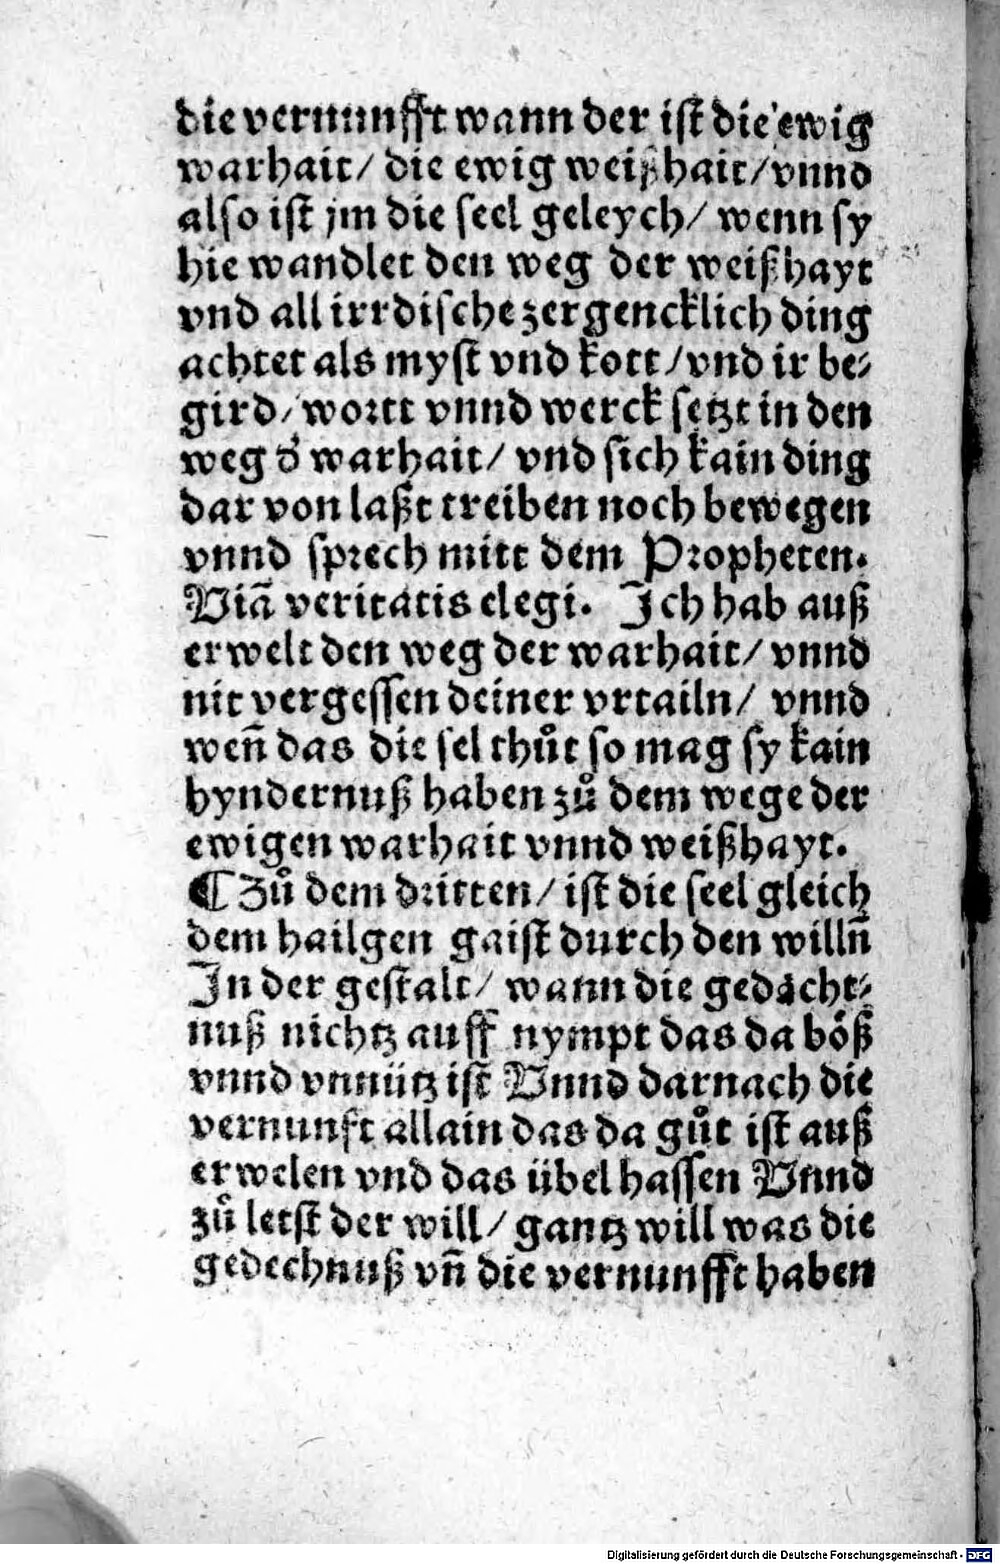 die vernunfft wann der ist die ewig
warhait/ die ewig weißhait/ vnnd
also ist jm die seel geleych/ wenn sy
hie wandlet den weg der weißhayt
vnd all irrdische zergencklich ding
achtet als myst vnd kott/ vnd ir be⸗
gird/ wortt vnnd werck setzt in den
weg d' warhait/ vnd sich kain ding
dar von laßt treiben noch bewegen
vnnd sprech mitt dem Propheten.
Viã veritatis elegi. Ich hab auß
erwelt den weg der warhait/ vnnd
nit vergessen deiner vrtailn/ vnnd
weñ das die sel thůt so mag sy kain
hyndernuß haben zů dem wege der
ewigen warhait vnnd weißhayt.
¶ Zů dem dritten/ ist die seel gleich
dem hailgen gaist durch den willñ
In der gestalt/ wann die gedächt⸗
nuß nichtz auff nympt das da böß
vnnd vnnütz ist Vnnd darnach die
vernunft allain das da gůt ist auß
erwelen vnd das übel hassen Vnnd
zů letst der will/ gantz will was die
gedechnuß vñ die vernunfft haben
Digitalisierung gefördert durch die Deutsche Forschungsgemeinschaft - DFG